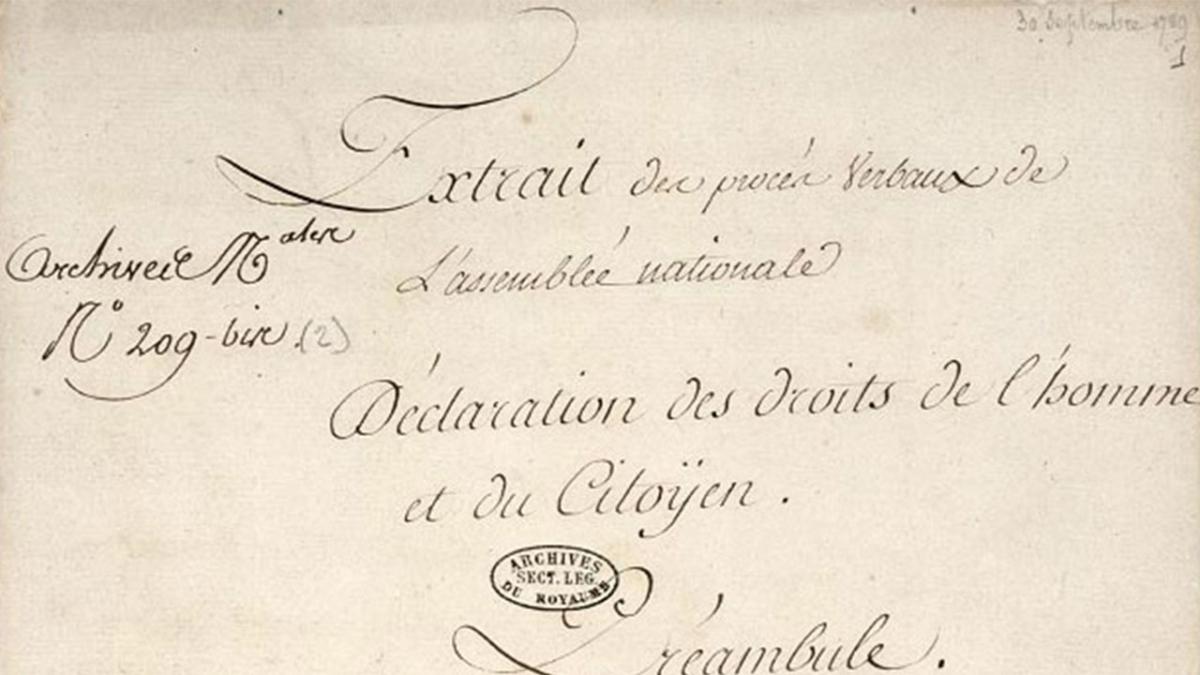 30 Septembre 1789
1
Extrait des procés Verbaux de
L'assemblée nationale
archives Natles
N° 209-bis (2)
Déclaration des droits de l'homme
et du Citoÿen.
ARCHIVES
SECT. LEG.
DU ROYAUME
Préambule.